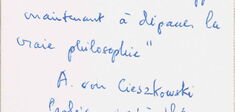 maintenant à dépasser la
vraie philosophie"
A. von Cieszkowski